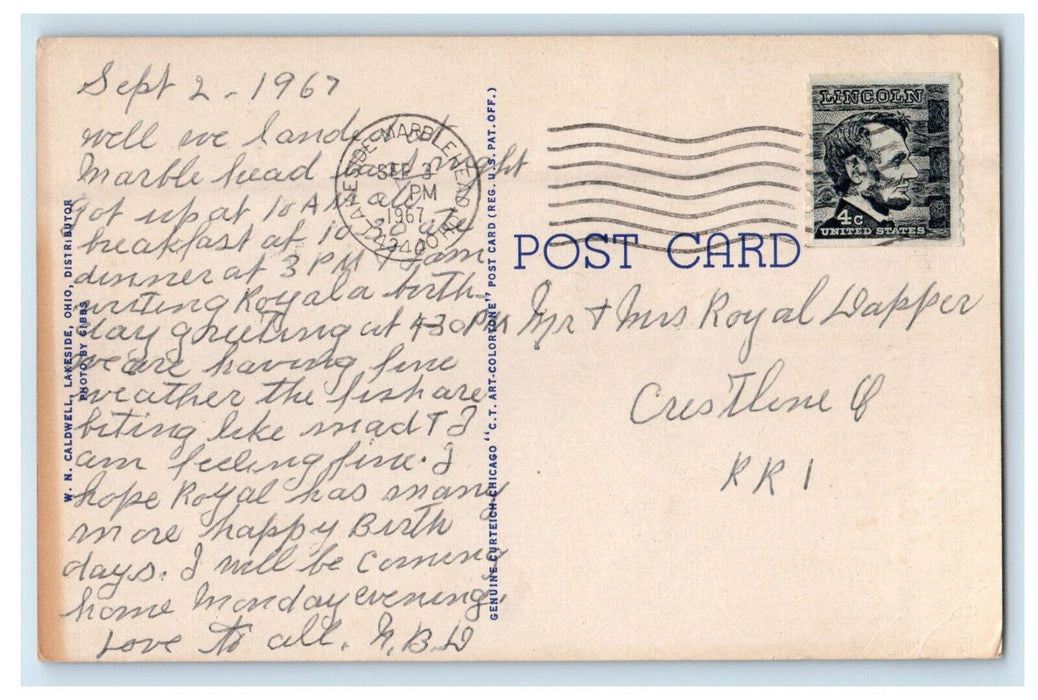 Sept 2 - 1967
well we landed at
Marble head last night
got up at 10 AM all
breakfast at 10 ate
dinner at 3 PM I am
writing Royal a birth-
day greeting at 430PM
we are having fine
weather the fish are
biting like mad & I
am feeling fine. I
hope Royal has many
more happy Birth
days. I will be coming
home Monday evening.
Love to all. N.B.D
W. N. CALDWELL, LAKESIDE, OHIO, DISTRIBUTOR
PHOTO BY GIBBS
GENUINE CURTEICH-CHICAGO "C.T. ART-COLORTONE" POST CARD (REG. U.S. PAT. OFF.)
LAKESIDE-MARBLEHEAD OHIO 43440
SEP 3
PM
1967
LINCOLN
4c
UNITED STATES
POST CARD
Mr & Mrs Royal Dapper
Crestline O
RR 1